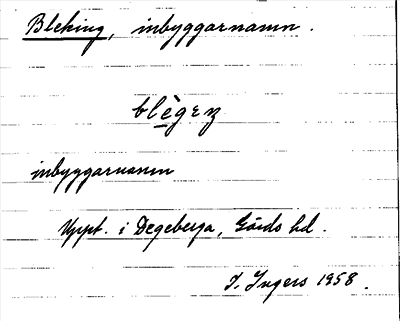 Bleking, inbyggarnamn.
blègeŋ
inbyggarnamn
Uppt. i Degeberga, Gärds hd.
I. Ingers 1958.